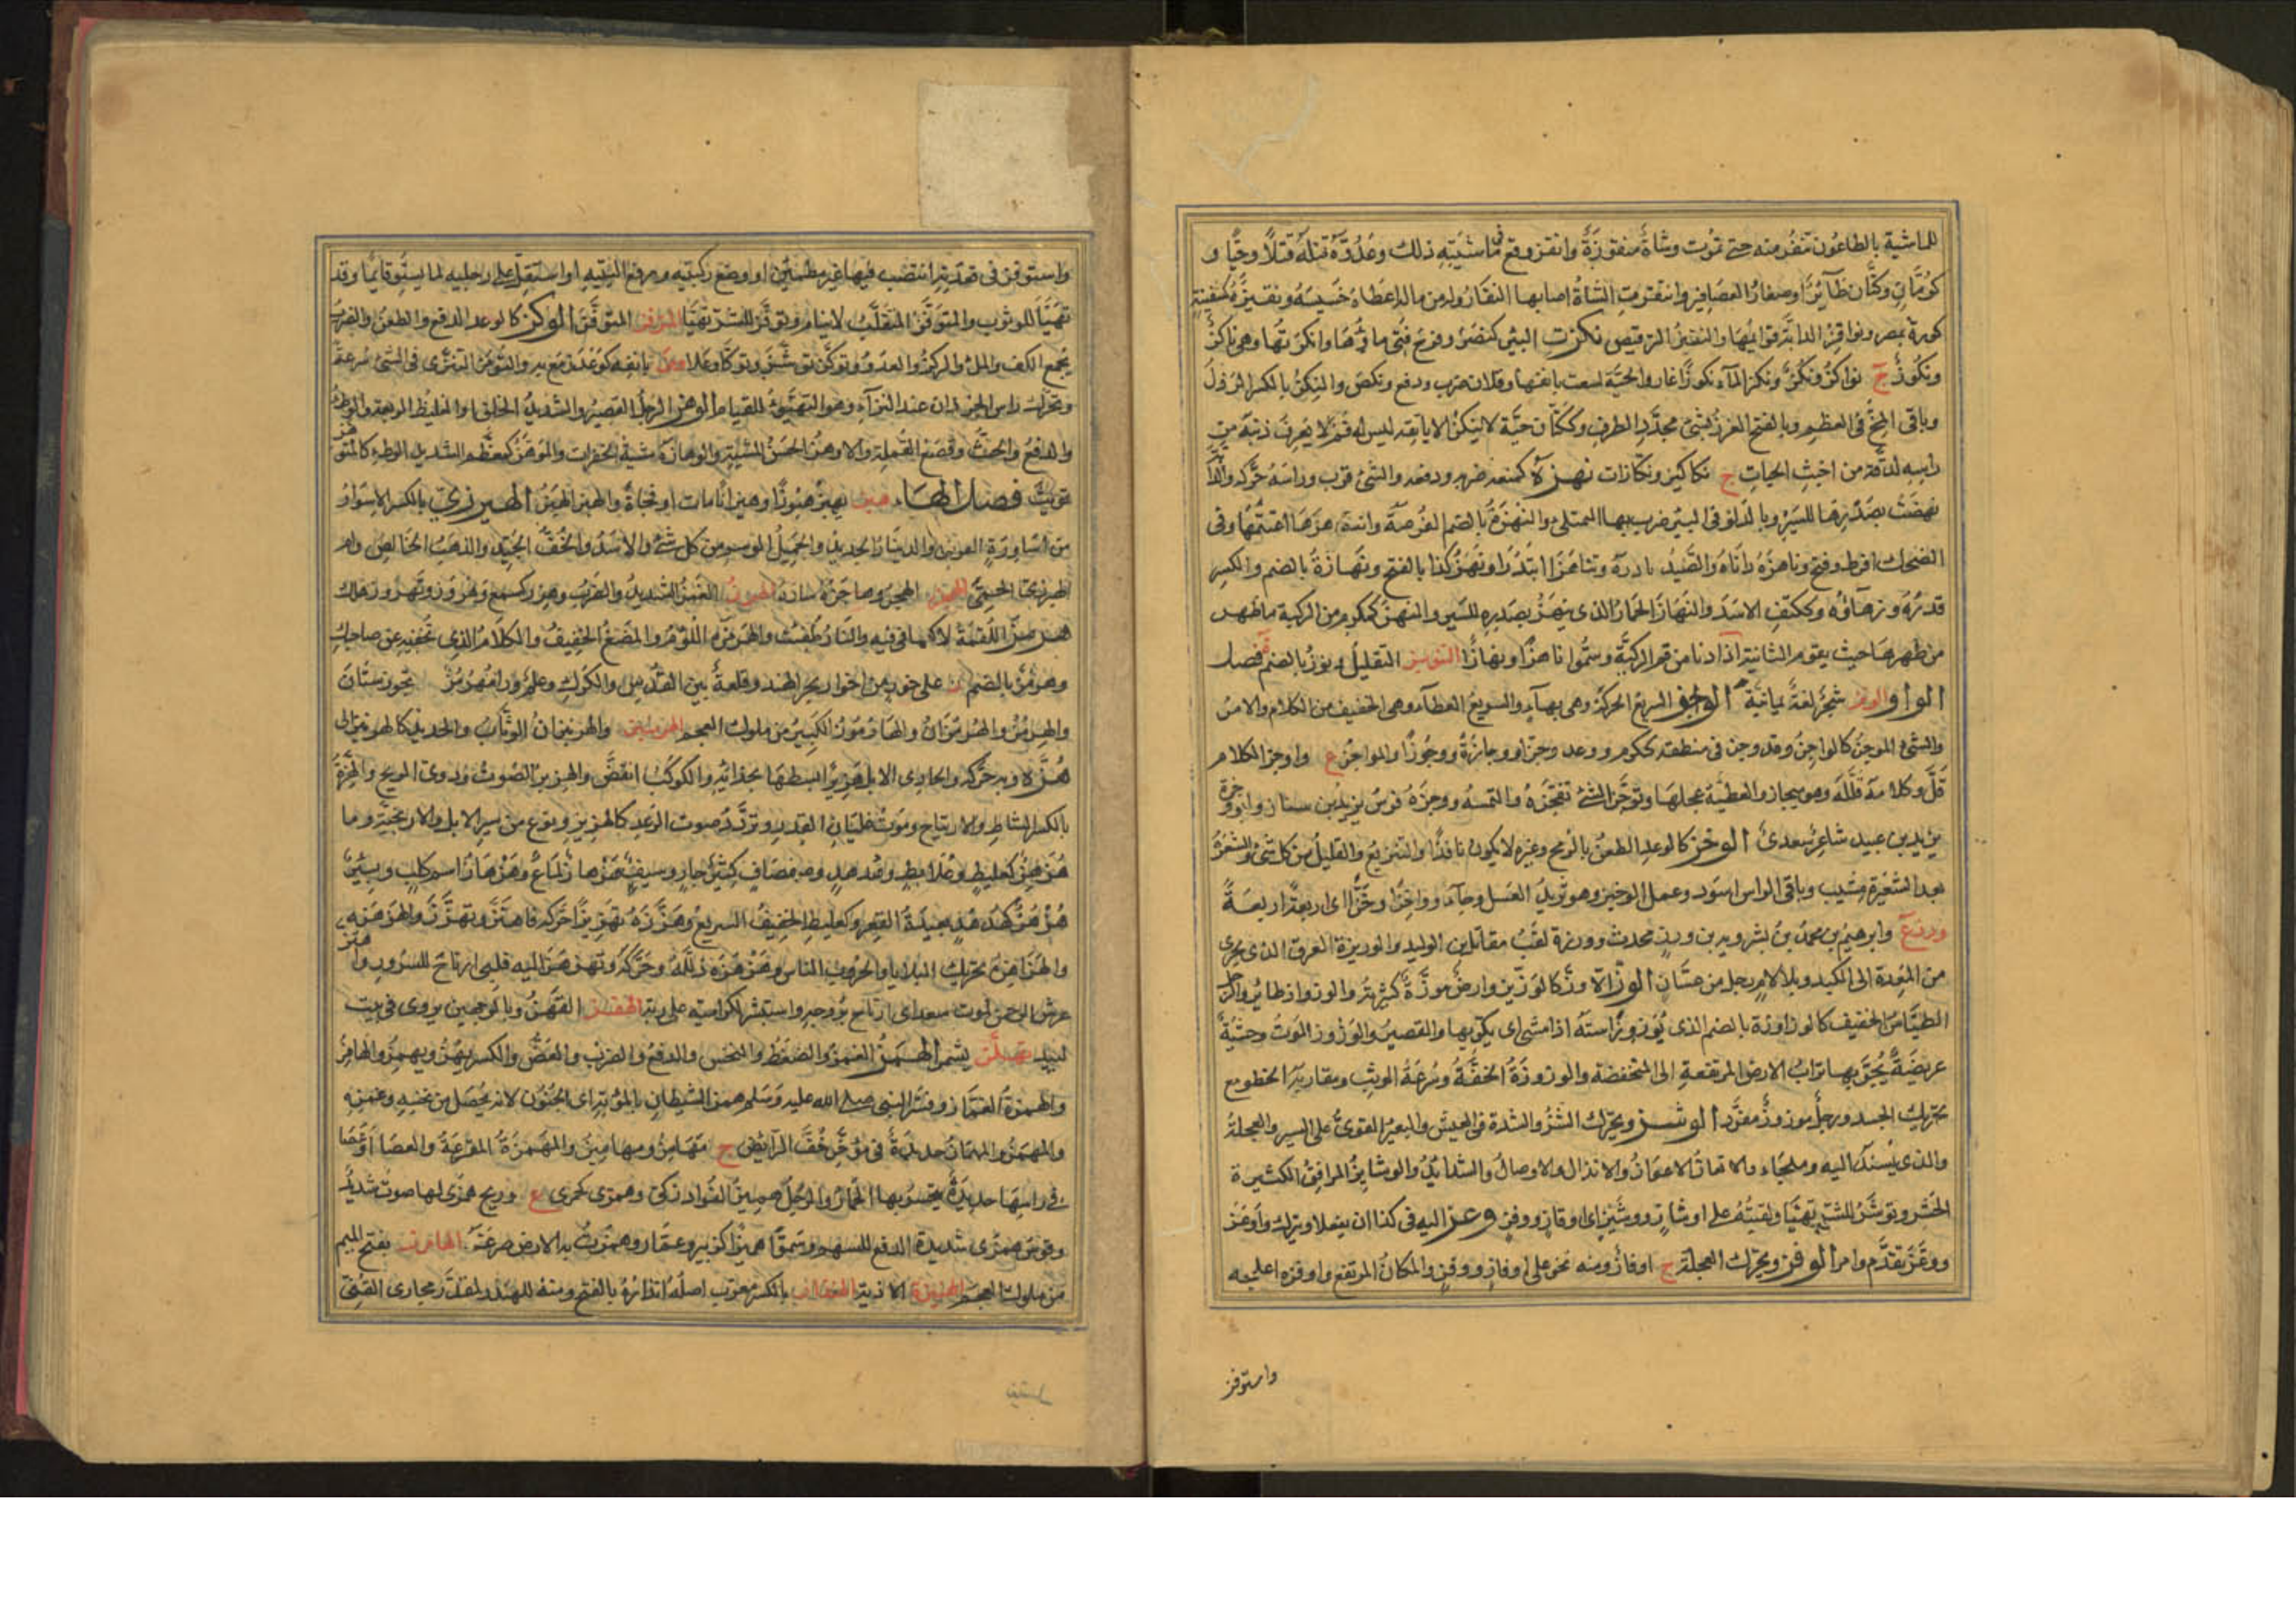 للماشية بالطاعون تنفر منه حتى تموت وشاة منقوزة وانقز وقع في ماشيته ذلك وعدوه قتله قتلا وحيا و
كرمان وكتان طائر او صغار العصافير وانتقزت الشاة اصابها النقاز وله من ماله اعطاه خسيسه ونقيزة كسفينة
كورة بمصر ونواقز الدابة قوائمها والتنقيز الترقيص نكزت البئر كنصر وفرح فنى ماؤها وانكزتها وهي ناكز
ونكوز ج نواكز ونكز ونكز الماء نكوزا غار والحية لسعت بانفها وفلان ضرب ودفع ونكص والنكز بالكسر الرذل
وباقى المخ فى العظم وبالفتح الغرز بشئ محدد الطرف وككتان حية لا ينكز الا بانفه ليس له فم لا يعرف ذنبه من
راسه لدقته من اخبث الحيات ج نكاكيز ونكازات نهزه كمنعه ضربه ودفعه والشئ قرب وراسه حركه والدابة
نهضت بصدرها للسير وبالدلو فى البئر ضرب بها الممتلئ والنهزة بالضم الفرصة وانتهزها اغتنمها وفى
الضحك افرط وقبح وناهزه داناه والصيد بادره وتناهزا ابتدرا ونهز كذا بالفتح ونهازة بالضم والكسر
قدره وزهاؤه وككتف الاسد والنهاز الحمار الذى ينهز بصدره للسير والمنهز كمكرم من الركية ما ظهر
من ظهرها حيث يقوم الثانية اذا دنا من فم الركية وسموا ناهزا ونهازا التنويز التقليل ونوز بالضم ة فصل
الواو الوتز شجر لغة يمانية الوجز السريع الحركة وهى بهاء والسريع العطاء وهى الخفيف من الكلام والامر
والشئ الموجز كالواجز وقد وجز فى منطقه ككرم ووعد وجزا ووجازة ووجوزا والمواجز ع واوجز الكلام
قل وكلامه قلله وهو ميجاز والعطية عجلها وتوجز الشئ تنجزه والتمسه ووجزة فرس يزيد بن سنان وابو وجزة
يزيد بن عبيد شاعر سعدى الوخز كالوعد الطعن بالرمح وغيره لا يكون نافذا والتبزيغ والقليل من كل شئ والشعرة
بعد الشعرة تشيب وباقى الراس اسود وعمل الوخيز وهو ثريد العسل وجاءوا وخزا وخزا اى اربعة اربعة
ورز ع وابرهيم بن محمد بن بشرويه بن ورز محدث وورزة لقب مقاتل بن الوليد والوريزة العرق الذى يجرى
من المعدة الى الكبد وبلا لام رجل من غسان الوز الاوز كالوزين وارض موزة كثيرته والوزواز طائر والرجل
الطياش الخفيف كالوزاوزة بالضم الذى يوزوز استه اذا مشى اى يلويها والقصير والوزوز الموت وخشبة
عريضة يجر بها تراب الارض المرتفعة الى المنخفضة والوزوزة الخفة وسرعة الوثب ومقاربة الخطو مع
تحريك الجسد ورجل موزوز مغرد الوشز ويحرك النشز والشدة فى العيش والبعير القوى على السير والعجلة
والذى يسند اليه وملجاء ولاقاتا الاعوان والانذال والاوصال والشدايد والوشايز المرافق الكثيرة
الحشو وتوشز للشر تهيا ولقيته على اوشاز ووشز اى اوفاز ووفز وعز اليه فى كذا ان يفعل او يترك واوعز
ووعز تقدم وامر الوفز ويحرك العجلة ج اوفاز ومنه نحن على اوفاز ووفز والمكان المرتفع واوفزه اعجله
واستوفز
واستوفز فى قعدته انتصب فيها غير مطمئن او وضع ركبتيه ورفع اليتيه او استقل على رجليه لما يستو قايما وقد
تهيا للوثوب والمتوفز المتقلب لا ينام وتوفز للشر تهيا المتوقز المتوفز الوكز كالوعد الدفع والطعن والضرب
بجمع الكف والملء والركز والعدو وتوكز توشز وتوكا وعلا ومز بانفه كوعد رمع به والتومز التنزى فى المشى سرعة
وتحريك راس الجردان عند النزاء وهو التهيؤ للقيام الوهز الرجل القصير والشديد الخلق او الغليظ الربعة والوطء
والدفع والحث وقصع القملة والاوهز الحسن المشية والوهازة مشية الخفرات والموهز كمعظم الشديد الوطء كالمتوهز
توثب فصل الهاء هبز يهبز هبوزا وهبزانا مات او فجاة والهبز الهبر الهبرزى بالكسر الاسوار
من اساورة الفرس والدينار الجديد والجميل الوسيم من كل شئ والاسد والخف الجيد والذهب الخالص وام
الهبرزى الحمى الهجز الهجس وهاجزه ساره الهرز الغمز الشديد والضرب وهرز كسمع وهروز وتهروز هلك
هرمز اللقمة لاكها فى فيه والنار طفئت والهرمزة اللؤم والمضغ الخفيف والكلام الذى تخفيه عن صاحبك
وهرمز بالضم د على خور من اخوار بحر الهند وقلعة بين القدس والكرك وعلم ورامهرمز بخوزستان
والهرمز والهرمزان والهارموز الكبير من ملوك العجم الهزنبز والهزنبزان الوثاب والحديد كالهزنبزانى
هزه وبه حركه والحادى الابل هزيزا نشطها بحدائه والكوكب انقض والهزيز الصوت ودوى الريح والهزة
بالكسر النشاط والارتياح وصوت غليان القدر وتردد صوت الرعد كالهزيز ونوع من سير الابل والاريحية وما
هزهز كعلبط وعلابط وقدهد وصفصاف كثير جار وسيف هزهاز لماع وهزهاز اسم كلب وبئر
هزهز كهدهد بعيدة القعر وكعلبط الخفيف السريع وهززه تهزيزا حركه فاهتز وتهزز والهزهزة
والهزاهز تحريك البلايا والحروب الناس وهزهزه ذلله وحركه وتهزهز اليه قلبى ارتاح للسرور واهتز
عرش الرحمن لموت سعد اى ارتاح بروحه واستبشر لكرامته على ربه الهقز القهز وبالوجهين يروى فى بيت
لبيد تهلز تشمر الهمز الغمز والضغط والنخس والدفع والضرب والعض والكسر يهمز ويهمز والهامز
والهمزة الغماز وفسر النبى صلى الله عليه وسلم همز الشيطان بالموتة اى الجنون لانه يحصل من نخسه وغمزه
والمهمز والمهماز حديدة فى مؤخر خف الرائض ج مهامز ومهاميز والمهمزة المقرعة والعصا او عصا
فى راسها حديدة ينخس بها الحمار والرجل هميز الفؤاد ذكى وهمزى كجمزى ع وريح همزى لها صوت شديد
وقوس همزى شديدة الدفع للسهم وسموا هميزا كزبير وعمار وهمزت به الارض صرعته الهامرز بفتح الميم
من ملوك العجم الهنيزة الاذية الهنداز بالكسر معرب اصله اندازه بالفتح ومنه المهندز لمقدر مجارى القنى